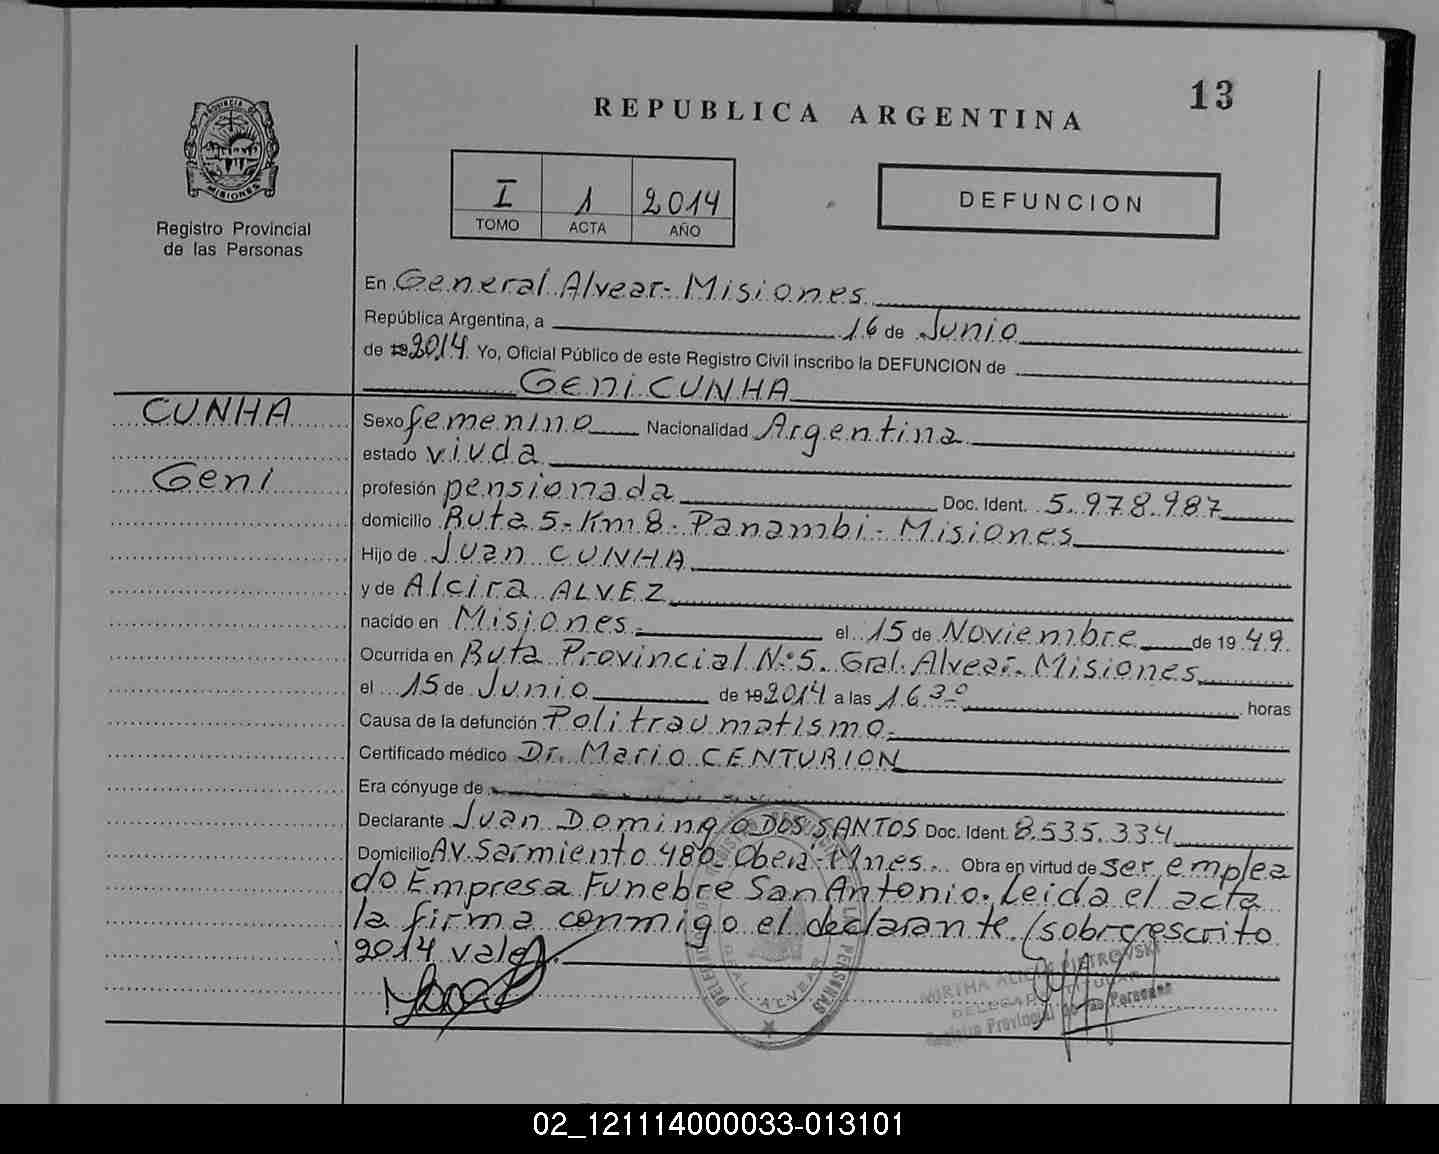 13
REPUBLICA ARGENTINA
PROVINCIA DE
MISIONES
Registro Provincial
de las Personas
I 1 2014
TOMO ACTA AÑO
DEFUNCION
En General Alvear-Misiones
República Argentina, a 16 de Junio
de 19 2014 Yo, Oficial Público de este Registro Civil inscribo la DEFUNCION de
Geni CUNHA
CUNHA
Geni
Sexo femenino Nacionalidad Argentina
estado viuda
profesión pensionada Doc. Ident. 5.978.987
domicilio Ruta 5-Km 8-Panambi-Misiones
Hijo de Juan CUNHA
y de Alcira ALVEZ
nacido en Misiones. el 15 de Noviembre de 19 49.
Ocurrida en Ruta Provincial Nº5. Gral. Alvear. Misiones
el 15 de Junio de 19 2014 a las 16 30 horas
Causa de la defunción Politraumatismo.
Certificado médico Dr. Mario CENTURION
Era cónyuge de
Declarante Juan Domingo DOS SANTOS Doc. Ident. 8.535.334
Domicilio Av. Sarmiento 480-Obera-Mnes. Obra en virtud de ser emplea
do Empresa Funebre San Antonio. Leida el acta
la firma conmigo el declarante (sobreescrito
2014 vale)
GRAL ALVEAR
PERSONAS
MIRTHA ALICIA PIETROVSKI
DELEGADA TITULAR
Registro Provincial de las Personas
02_121114000033-013101